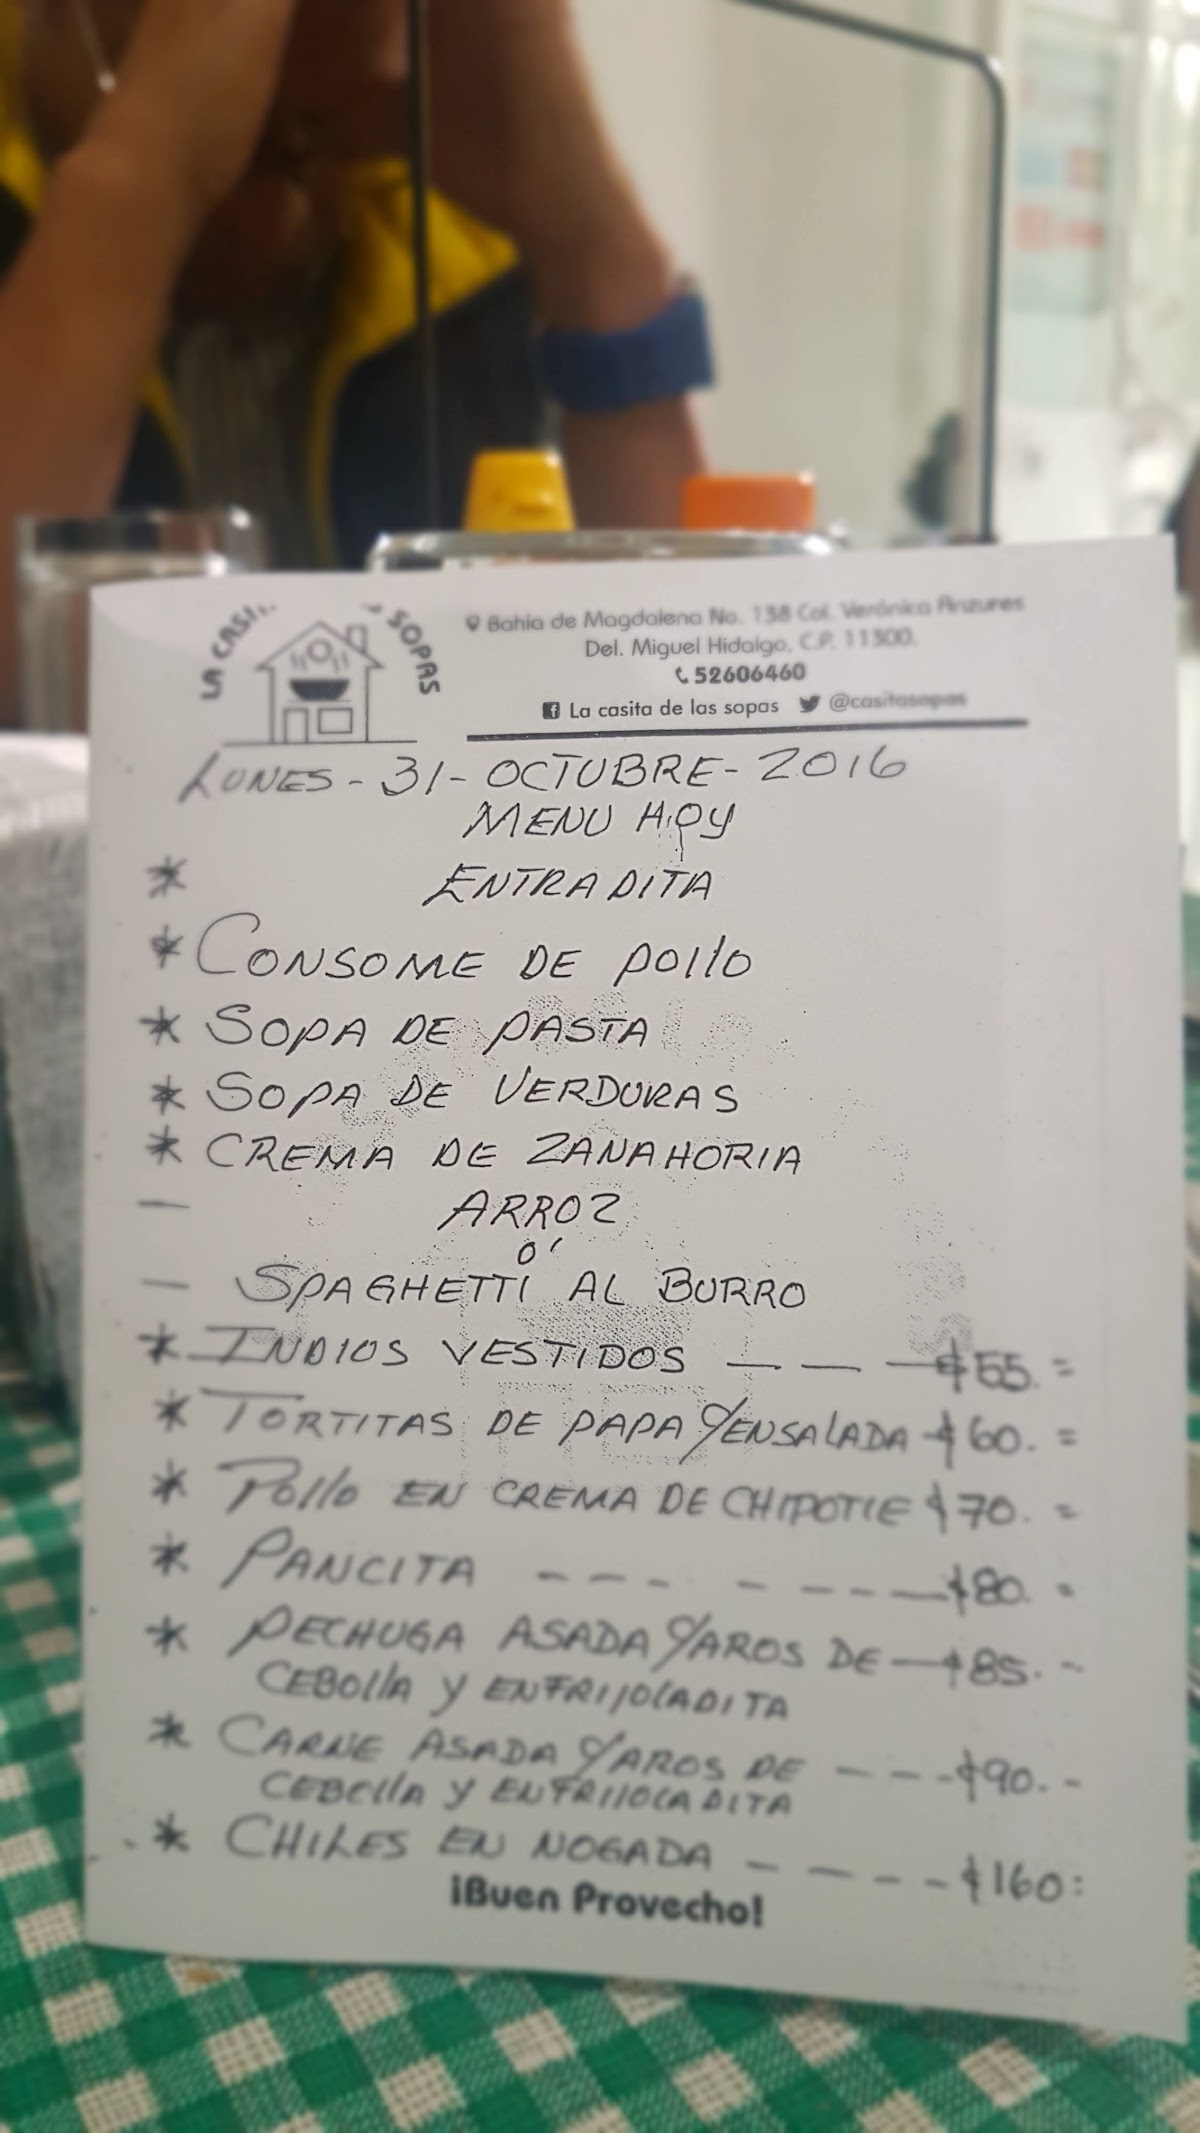 LA CASITA DE LAS SOPAS
Bahía de Magdalena No. 138 Col. Verónica Anzures
Del. Miguel Hidalgo, C.P. 11300.
52606460
La casita de las sopas @casitasopas
LUNES - 31 - OCTUBRE - 2016
MENU HOY
* ENTRADITA
* CONSOME DE POllO
* SOPA DE PASTA
* SOPA DE VERDURAS
* CREMA DE ZANAHORIA
— ARROZ
O'
— SPAGHETTI AL BURRO
* INDIOS VESTIDOS — — — $55. =
* TORTITAS DE PAPA C/ENSALADA $60. =
* POllO EN CREMA DE CHIPOTLE $70. =
* PANCITA - - - - - - - $80. =
* PECHUGA ASADA C/AROS DE — $85. -
CEBOllA Y ENFRIJOLADITA
* CARNE ASADA C/AROS DE - - - $90. -
CEBOllA Y ENFRIJOLADITA
* CHILES EN NOGADA - - - - - $160 =
¡Buen Provecho!